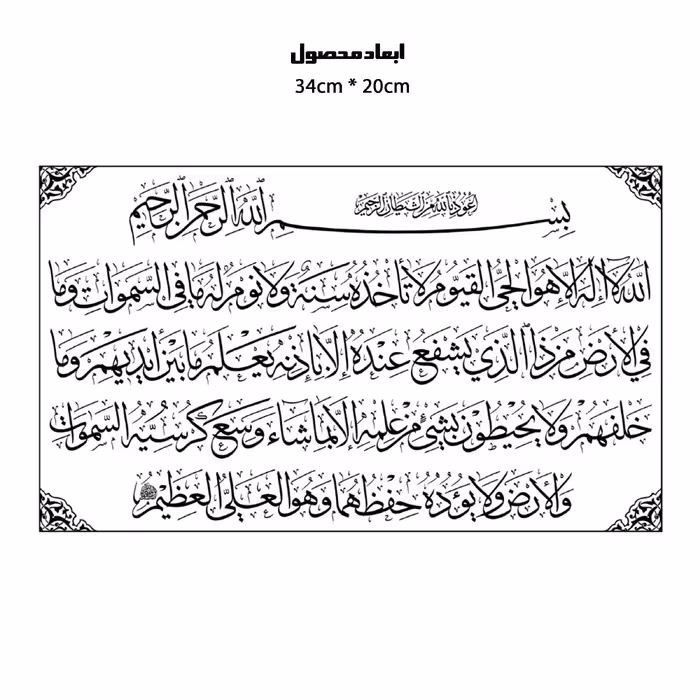 ابعاد محصول
34cm * 20cm
اعوذ بالله من الشيطان الرجيم
بسم الله الرحمن الرحيم
الله لا اله الا هو الحي القيوم لا تأخذه سنة ولا نوم له ما في السموات وما
في الارض من ذا الذي يشفع عنده إلا بإذنه يعلم ما بين أيديهم وما
خلفهم ولا يحيطون بشيء من علمه الا بما شاء وسع كرسيه السموات
والارض ولا يؤده حفظهما وهو العلي العظيم